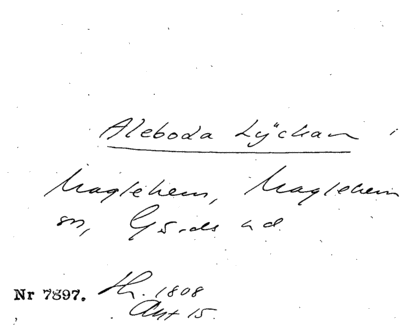 Aleboda Lÿckan i
Maglehem, Maglehem
sn, Gärds hd
Nr 7897. Hr. 1808
Akt 15.